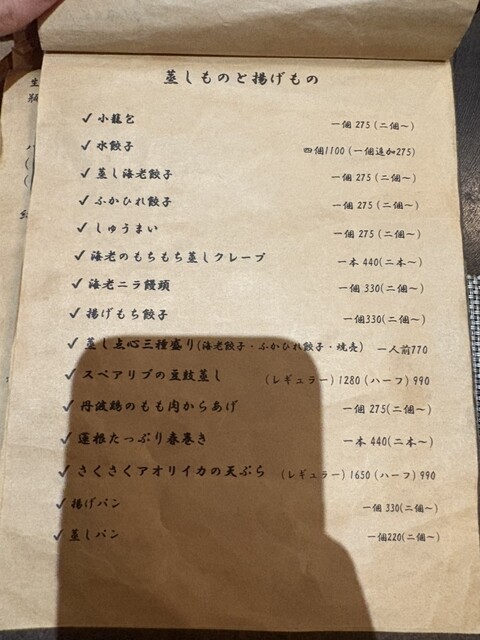 蒸しものと揚げもの
✓ 小龍包 一個 275 (二個〜)
✓ 水餃子 四個1100 (一個追加275)
✓ 蒸し海老餃子 一個 275 (二個〜)
✓ ふかひれ餃子 一個 275 (二個〜)
✓ しゅうまい 一個 275 (二個〜)
✓ 海老のもちもち蒸しクレープ 一本 440(二本〜)
✓ 海老ニラ饅頭 一個 330(二個〜)
✓ 揚げもち餃子 一個330(二個〜)
✓ 蒸し点心三種盛り(海老餃子・ふかひれ餃子・焼売) 一人前770
✓ スペアリブの豆鼓蒸し (レギュラー) 1280 (ハーフ) 990
✓ 丹波鶏のもも肉からあげ 一個 275(二個〜)
✓ 蓮根たっぷり春巻き 一本 440(二本〜)
✓ さくさくアオリイカの天ぷら (レギュラー) 1650 (ハーフ) 990
✓ 揚げパン 一個 330(二個〜)
✓ 蒸しパン 一個220(二個〜)